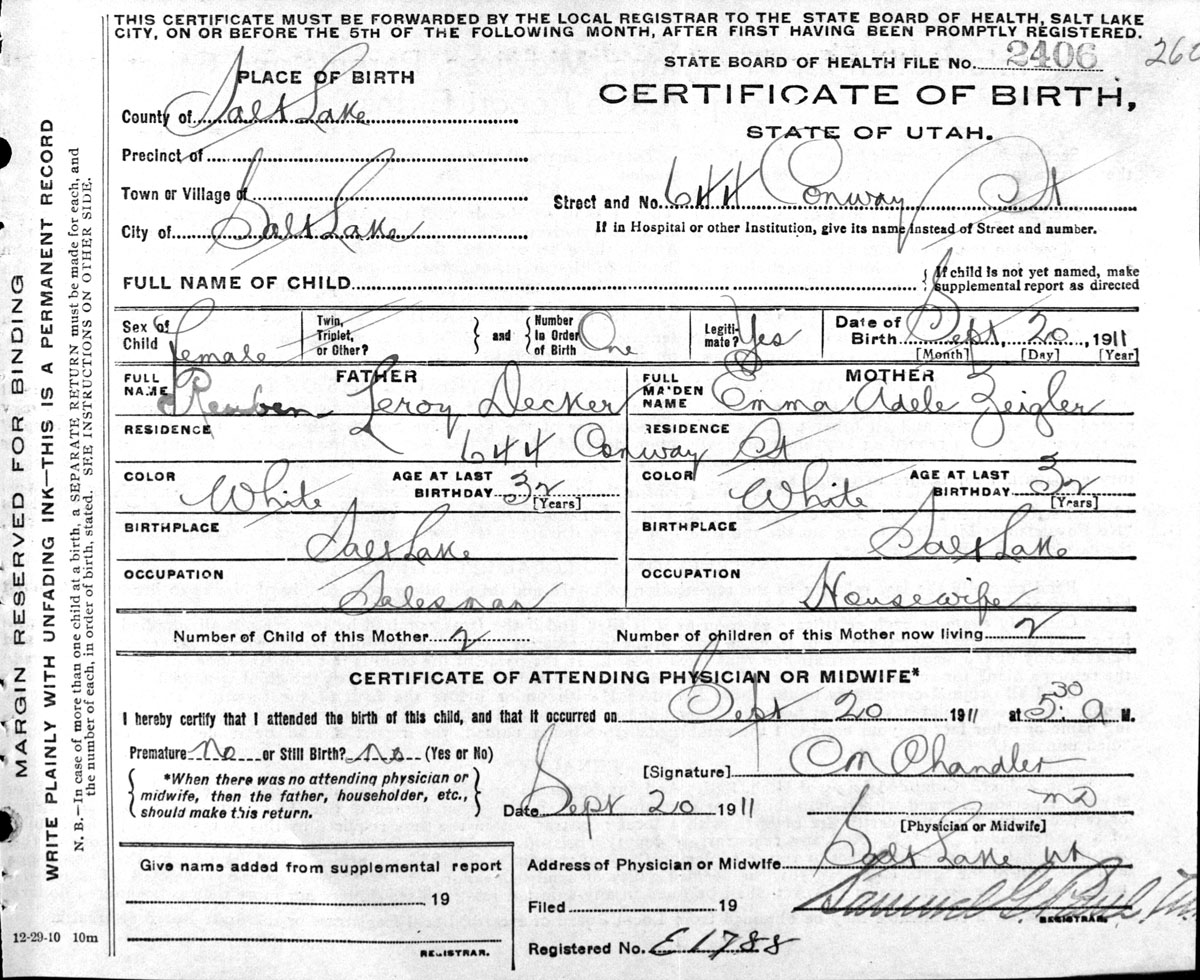 THIS CERTIFICATE MUST BE FORWARDED BY THE LOCAL REGISTRAR TO THE STATE BOARD OF HEALTH, SALT LAKE
CITY, ON OR BEFORE THE 5TH OF THE FOLLOWING MONTH, AFTER FIRST HAVING BEEN PROMPTLY REGISTERED.
STATE BOARD OF HEALTH FILE No. 2406
PLACE OF BIRTH
CERTIFICATE OF BIRTH,
STATE OF UTAH.
County of Salt Lake
Precinct of
Town or Village of
Street and No. 644 Conway St
City of Salt Lake
If in Hospital or other Institution, give its name instead of Street and number.
FULL NAME OF CHILD
If child is not yet named, make
supplemental report as directed
Sex of Child Female
Twin, Triplet, or Other?
and
Number in Order of Birth One
Legitimate? Yes
Date of Birth Sept, 20, 1911
[Month] [Day] [Year]
FATHER
FULL NAME Reuben Leroy Decker
MOTHER
FULL MAIDEN NAME Emma Adele Zeigler
RESIDENCE
RESIDENCE
644 Conway St
COLOR White
AGE AT LAST BIRTHDAY 32 [Years]
COLOR White
AGE AT LAST BIRTHDAY 32 [Years]
BIRTHPLACE Salt Lake
BIRTHPLACE Salt Lake
OCCUPATION Salesman
OCCUPATION Housewife
Number of Child of this Mother 2
Number of children of this Mother now living 2
CERTIFICATE OF ATTENDING PHYSICIAN OR MIDWIFE*
I hereby certify that I attended the birth of this child, and that it occurred on Sept 20 1911 at 5:30 a M.
Premature No or Still Birth? No (Yes or No)
[Signature] CM Chandler
*When there was no attending physician or
midwife, then the father, householder, etc.,
should make this return.
Date Sept 20 1911
MD
[Physician or Midwife]
Give name added from supplemental report
19
REGISTRAR.
Address of Physician or Midwife Salt Lake Ut
Filed 19
Samuel G.
REGISTRAR.
Registered No. E1788
12-29-10 10m
MARGIN RESERVED FOR BINDING
WRITE PLAINLY WITH UNFADING INK—THIS IS A PERMANENT RECORD
N. B.—In case of more than one child at a birth, a SEPARATE RETURN must be made for each, and
the number of each, in order of birth, stated. SEE INSTRUCTIONS ON OTHER SIDE.